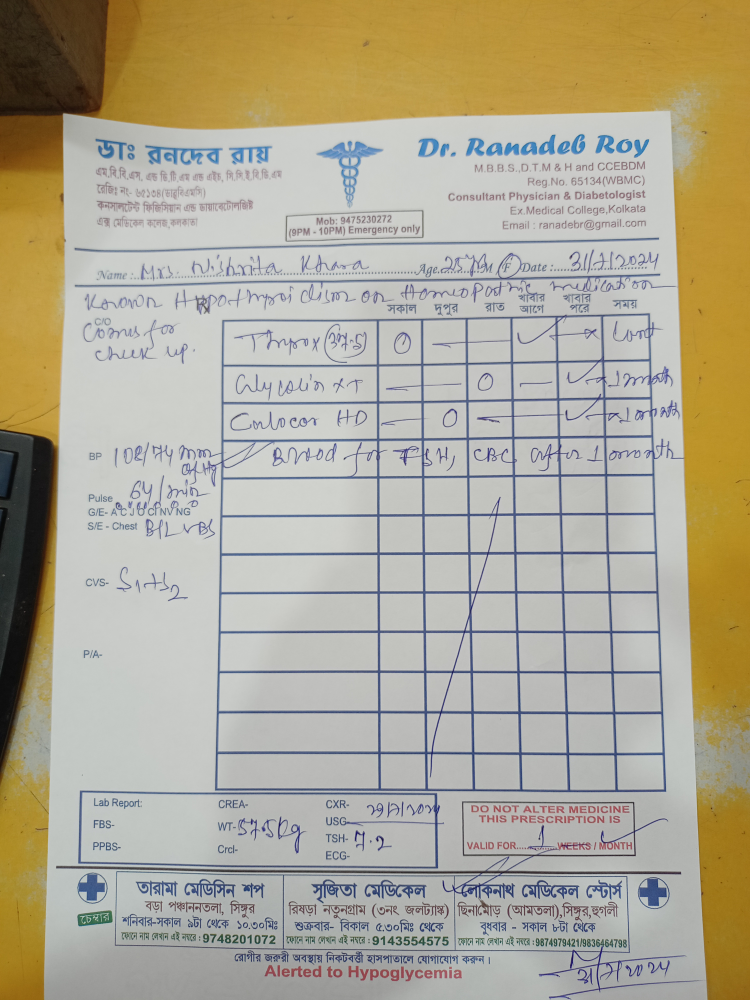 ডাঃ রনদেব রায়
এম.বি.বি.এস, এন্ড ডি.টি.এম এন্ড এইচ, সি.সি.ই.বি.ডি.এম
রেজিঃ নং- ৬৫১৩৪(ডাব্লুবিএমসি)
কনসালটেন্ট ফিজিসিয়ান এন্ড ডায়াবেটোলজিষ্ট
এক্স মেডিকেল কলেজ,কলকাতা
Mob: 9475230272
(9PM - 10PM) Emergency only
Dr. Ranadeb Roy
M.B.B.S.,D.T.M & H and CCEBDM
Reg.No. 65134(WBMC)
Consultant Physician & Diabetologist
Ex.Medical College,Kolkata
Email : ranadebr@gmail.com
Name : Mrs. Khara Age. 25 M F Date : 31/7/2024
Known Hypothyroidism on Homeopathic medication
C/O
Comes for check up.
সকাল দুপুর রাত খাবার আগে খাবার পরে সময়
Thyrox (37.5) Cont
XT 1 month
HD 1 month
Blood for TSH, CBC after 1 month
BP 102/74 mm of Hg
Pulse 64/min
G/E- A C J O CI NV NG
S/E - Chest B/L VBS
CVS- S1+S2
P/A-
Lab Report:
FBS-
PPBS-
CREA-
WT- 57.5 kg
Crcl-
CXR- 29/7/2024
USG
TSH- 7.2
ECG-
DO NOT ALTER MEDICINE
THIS PRESCRIPTION IS
VALID FOR 1 WEEKS / MONTH
চেম্বার
তারামা মেডিসিন শপ
বড়া পঞ্চাননতলা, সিঙ্গুর
শনিবার-সকাল ৯টা থেকে ১০.৩০মিঃ
ফোনে নাম লেখান এই নম্বরে : 9748201072
সৃজিতা মেডিকেল
রিষড়া নতুনগ্রাম (৩নং জলট্যাঙ্ক)
শুক্রবার- বিকাল ৫.৩০মিঃ থেকে
ফোনে নাম লেখান এই নম্বরে : 9143554575
লোকনাথ মেডিকেল স্টোর্স
ছিনামোড় (আমতলা),সিঙ্গুর,হুগলী
বুধবার - সকাল ৮টা থেকে
ফোনে নাম লেখান এই নম্বরে :9874979421/9836464798
রোগীর জরুরী অবস্থায় নিকটবর্তী হাসপাতালে যোগাযোগ করুন।
Alerted to Hypoglycemia